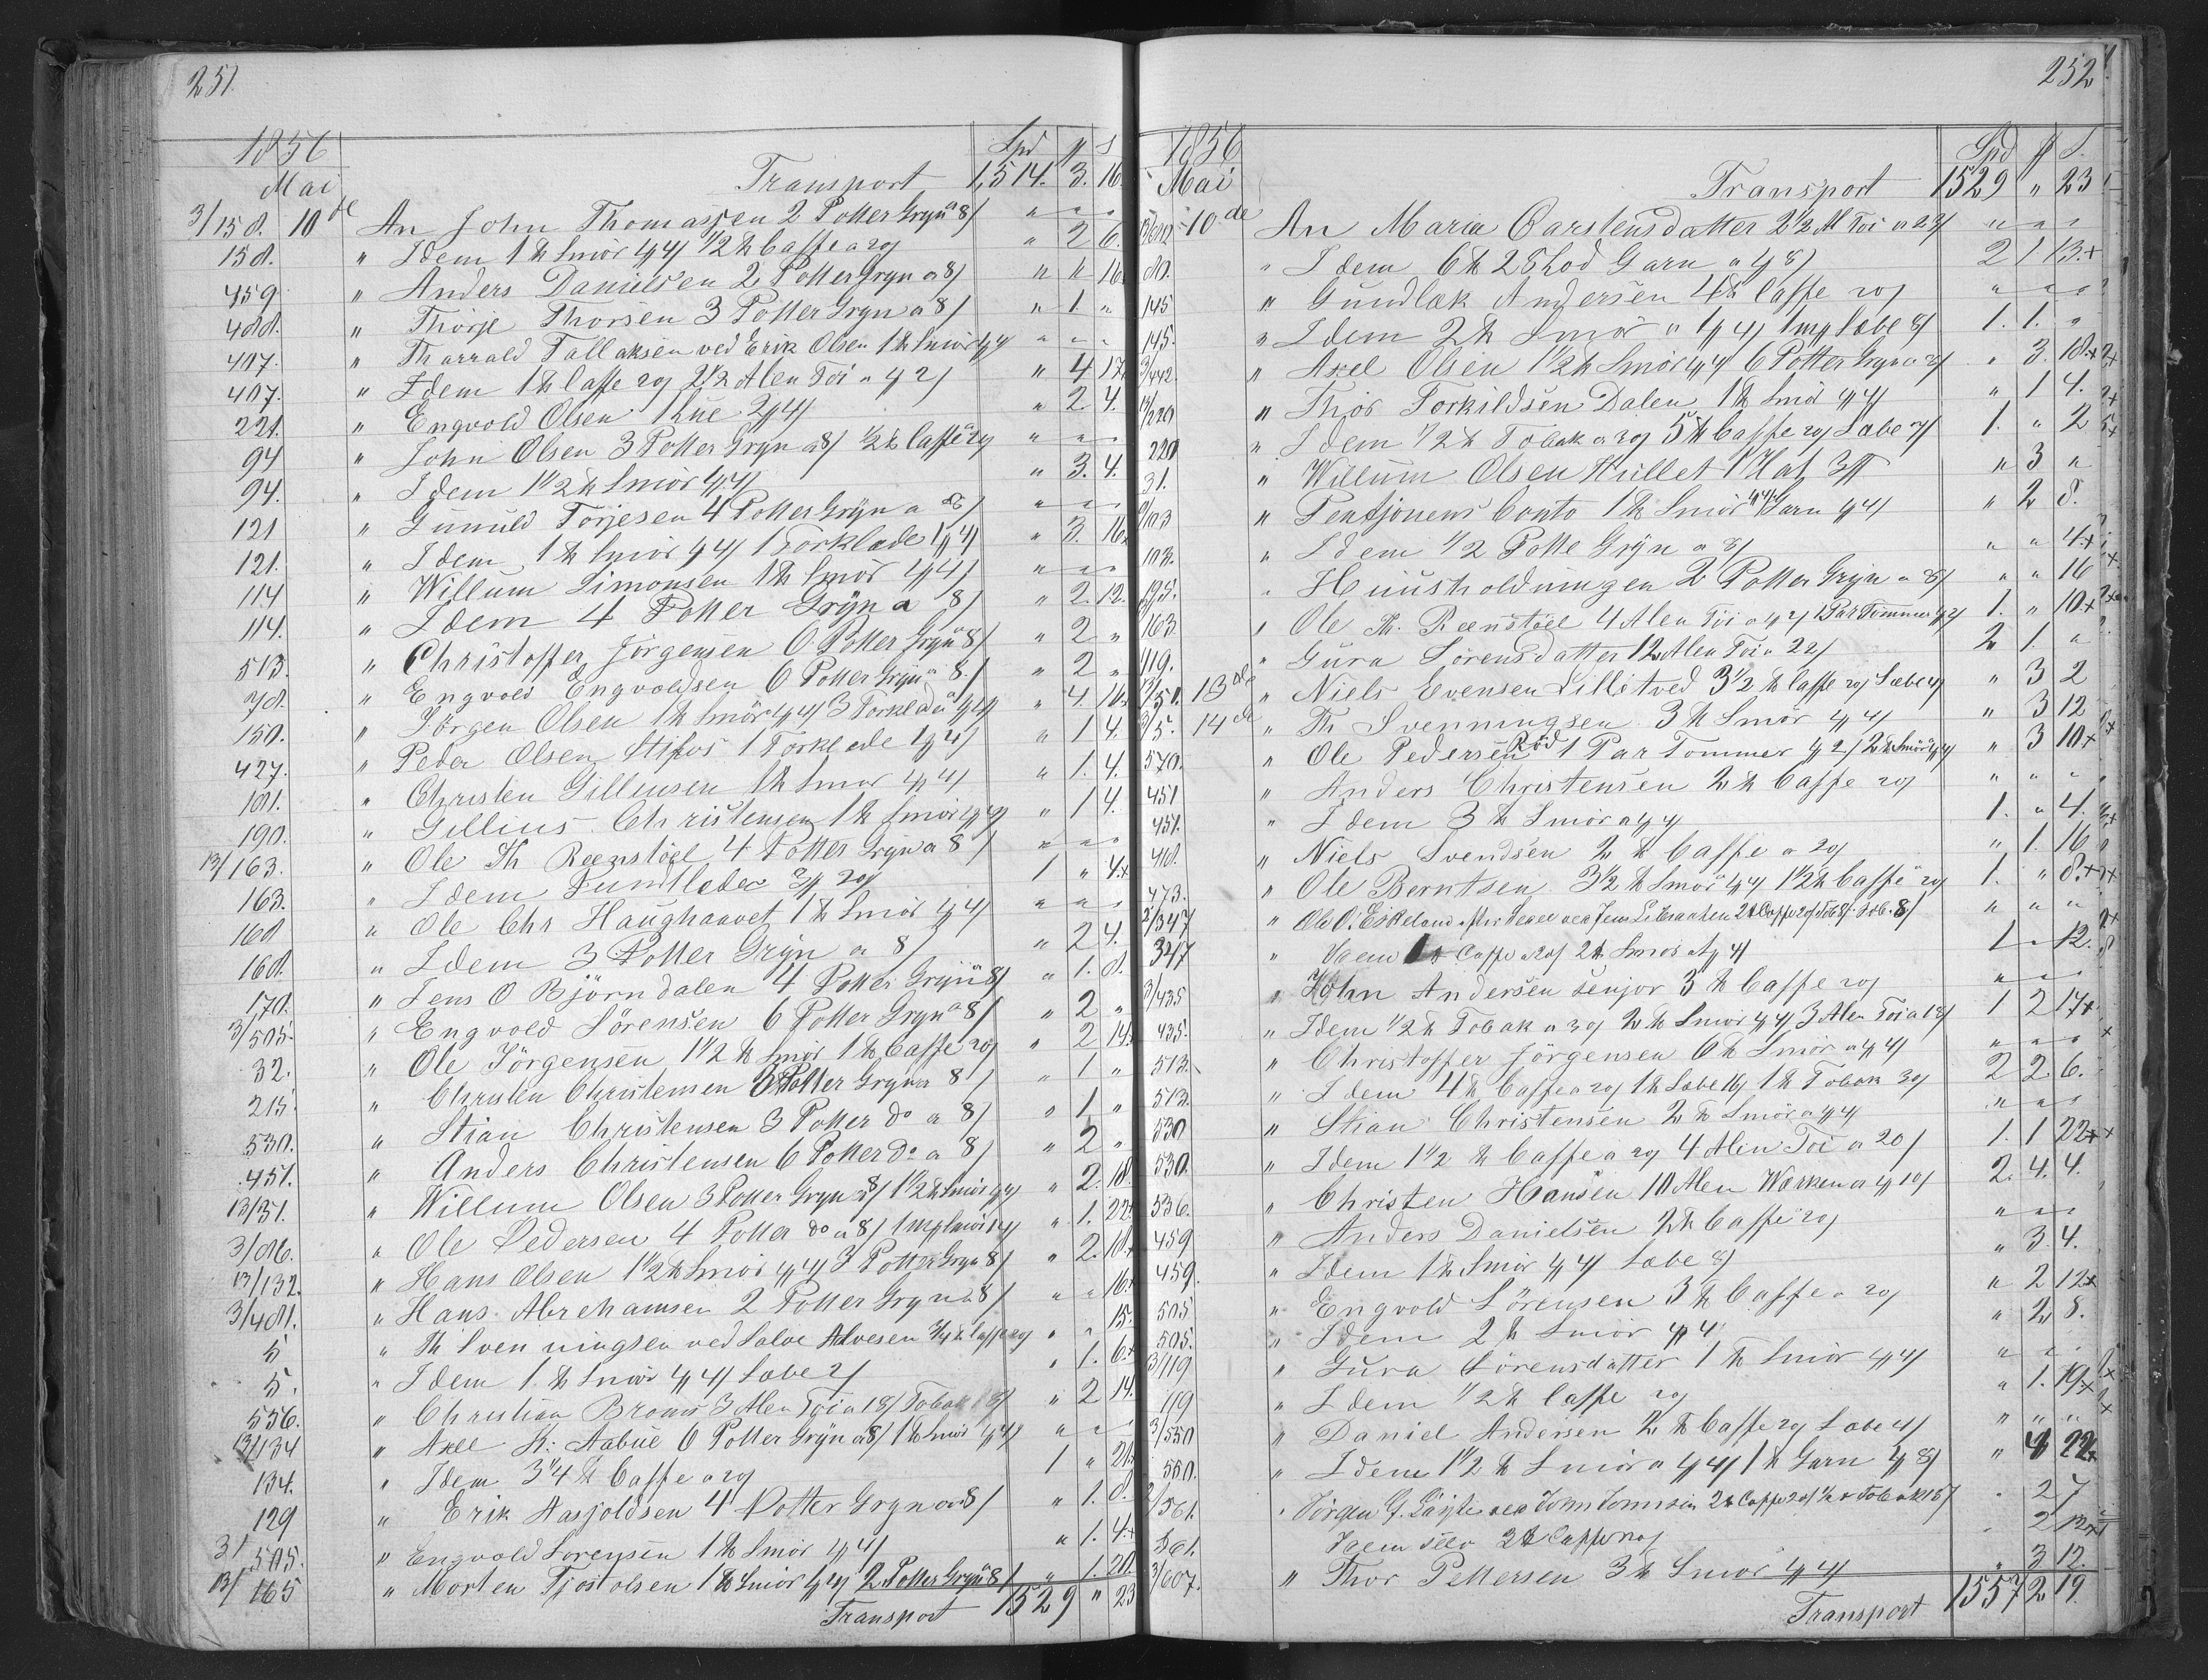 251.
1856
Mai
Spd # s
Transport 1,514. 3. 16.
3/158. 10de An John Thomassen 2 Potter Gryn a 8/ " " "
158. " Idem 1 ℔ Smör 1/4/ 1/2 ℔ Caffe a 20/ " 2 6.
459 " Anders Danielsen 2 Potter Gryn a 8/ " " 16.
488. " Thorje Thorsen 3 Potter Gryn a 8/ " 1 "
407. " Tharrald Tallaksen ved Erik Olsen 1 ℔ Smör 1/4/ " " "
407. " Idem 1 ℔ Caffe 20/ 2 1/2 Alen Töi a 1/2/ " 4 17.
221. " Engvold Olsen 1 Hue 2/4/ " 2. 4.
94 " John Olsen 3 Potter Gryn a 8/ 1/2 ℔ Caffe a 20/ " " "
94. " Idem 1 1/2 ℔ Smör 1/4/ " 3. 4.
121 " Gunuld Torjesen 4 Potter Gryn a 8/ " " "
121. " Idem 1 ℔ Smör 1/4/ 1 Törklæde 1/4/ " 3. 16.
114 " Willum Simonsen 1 ℔ Smör 1/4/ " " "
114. " Idem 4 Potter Gryn a 8/ " 2. 12.
513. " Christoffer Jörgensen 6 Potter Gryn a 8/ " 2 "
" Engvold Engvoldsen 6 Potter Gryn a 8/ " 2 "
150. " Jörgen Olsen 1 ℔ Smör 1/4/ 3 Törklæde a 1/4/ " 4
427. " Peder Olsen Stifos 1 Törklæde 1/4/ " 1 4.
181. " Christen Gilleusen 1 ℔ Smör 1/4/ " 1. 4.
190. " Gillius Christensen 1 ℔ Smör 1/4/ " 1 4.
13/163. " Ole Th Reenstöel 4 Potter Gryn a 8/ " " "
163. " Idem Pundleder 3/ 20/ 1 " 4+
168 " Ole Chr Haughaavet 1 ℔ Smör 1/4/ " " "
168. " Idem 3 Potter Gryn a 8/ " 2 4.
170. " Jens O Björndalen 4 Potter Gryn a 8/ " 1. 8.
3/505. " Engvold Sörensen 6 Potter Gryn a 8/ " 2 "
32. " Ole Jörgensen 1 1/2 ℔ Smör 1 ℔ Caffe 20/ " 2 14.
215. " Christen Christensen 3 Potter Gryn a 8/ " 1 "
530. " Stian Christensen 3 Potter do a 8/ " 1 "
451. " Anders Christensen 6 Potter do a 8/ " 2 "
13/31. " Willum Olsen 3 Potter Gryn a 8/ 1 1/2 ℔ Smör 1/4/ " 2. 18.
3/86. " Ole Pedersen 4 Potter do a 8/ 1 mp Smör 14/ " 1. 22
13/132. " Hans Olsen 1 1/2 ℔ Smör 1/4/ 3 Potter Gryn 8/ " 2. 18+
3/481. " Hans Abrehamsen 2 Potter Gryn a 8/ " " 16+
5 " Th Svenningsen ved Salve Alvesen 3/4 ℔ Caffe 20/ " " 15.
5. " Idem 1 ℔ Smör 1/4/ Sæbe 2/ " 1. 6+
556. " Christian Broms 3 Alen Töi a 18/ Tobak 8/ " 2 14.
13/134 " Axel K: Aabue 6 Potter Gryn a 8/ 1 ℔ Smör 1/4/ " " "
134. " Idem 3 1/4 ℔ Caffe a 20/ 1 " 21
129 " Erik Aasjoldsen 4 Potter Gryn a 8/ " 1. 8.
3/505. " Engvold Sorensen 1 ℔ Smör 1/4/ " 1. 4+
13/165 " Morten Tjostolsen 1 ℔ Smör 1/4/ 2 Potter Gryn 8/ " 1. 20.
Transport 1529 " 23
252
1856
Mai
Spd # S.
Transport 1529 " 23
10de An Maria Carstensdatter 2 1/2 Al Töi a 22/ " " "
80. " Idem 6 ℔ 28 Lod Garn a 1/8/ 2 1 13.+
145 " Gundlak Andersen 4 ℔ Caffe 20/ " " "
145. " Idem 2 ℔ Smör a 1/4/ 1 mp Sæbe 8/ 1. 1. "
3/442. " Axel Olsen 1 1/2 ℔ Smör 1/4/ 6 Potter Gryn a 8/ " 3. 18+
13/220 " Thor Torkildsen Dalen 1 ℔ Smör 1/4/ " 1 4.
220 " Idem 1/2 ℔ Tobak a 30/ 5 ℔ Caffe 20/ Sæbe 7/ 1. " 2
31. " Willum Olsen Hullet 1 Hat 3# " 3 "
103 " Pensjonens Conto 1 ℔ Smör 1/4/ Garn 1/4/ " 2 8.
103. " Idem 1/2 Potte Gryn a 8/ " " 4+
" Huusholdningen 2 Potter Gryn a 8/ " " 16
163. " Ole Th. Reenstöel 4 Alen Töi a 1/2/ 1 Par Tommer 1/2/ 1. " 10+
119. " Gura Sörensdatter 12 Alen Töi a 22/ 2 1. "
13/50. 13de " Niels Evensen Lillitved 3 1/2 ℔ Caffe 20/ Sæbe 4/ " 3 2
3/5. 14de " Th Svenningsen 3 ℔ Smör 1/4/ " 3 12
570. " Ole Pedersen Röd 1 Par Tommer 1/2/ 2 ℔ Smör 1/4/ " 3 10+
451 " Anders Christensen 2 ℔ Caffe 20/ " " "
451. " Idem 3 ℔ Smör a 1/4/ 1. " 4.
418. " Niels Svendsen 2 ℔ Caffe a 20/ " 1. 16
473. " Ole Berntsen 3 1/2 ℔ Smör 1/4/ 1 1/2 ℔ Caffe 20/ 1. " 8.+
2/347 " Ole O. Eskeland 2 ℔ Caffe 20/ 8/ " " "
347 " Idem 1 ℔ Caffe a 20/ 2 ℔ Smör a 1/4/ 1 " 12.
3/435 " John Andersen senjor 3 ℔ Caffe 20/ " " "
435. " Idem 1/2 ℔ Tobak a 30/ 2 ℔ Smör 1/4/ 3 Alen Töi a 18/ 1 2 17+
513. " Christoffer Jörgensen 6 ℔ Smör a 1/4/ " " "
513. " Idem 4 ℔ Caffe a 20/ 1 ℔ Sæbe 16/ 1 ℔ Tobak 30/ 2 2 6.
530 " Stian Christensen 2 ℔ Smör a 1/4/ " " "
530. " Idem 1 1/2 ℔ Caffe a 20/ 4 Alen Töi a 20/ 1. 1 22+
536. " Christen Hansen 10 Alen Værken a 1/10/ 2. 4. 4.
459 " Anders Danielsen 2 ℔ Caffe 20/ " " "
459. " Idem 1 ℔ Smör 1/4/ Sæbe 8/ " 3. 4.
505 " Engvold Sörensen 3 ℔ Caffe a 20/ " 2 12+
505. " Idem 2 ℔ Smör 1/4/ " 2 8.
13/119 " Gura Sörensdatter 1 ℔ Smör 1/4/ " " "
119 " Idem 1/2 ℔ Caffe 20/ " 1. 19+
3/550 " Daniel Andersen 2 ℔ Caffe 20/ Sæbe 4/ " " "
550. " Idem 1 1/2 ℔ Smör a 1/4/ 1 ℔ Garn 1/8/ " 4 22
2/561. " Jörgen G. ved John 2 ℔ Caffe 20/ 1/2 ℔ Tobak 15/ " 2 7
561. Idem 3 ℔ Caffe 20/ " 2 12+
3/607. " Thor Pettersen 3 ℔ Smör 1/4/ " 3 12.
Transport 1557 2 19.